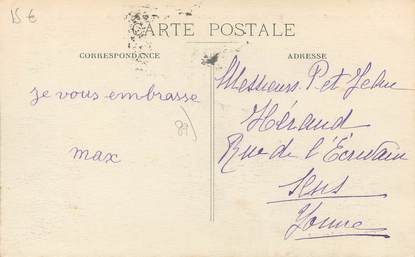 15 €
CARTE POSTALE
CORRESPONDANCE
ADRESSE
Je vous embrasse
max
89
Messieurs P et Jehn
Héraud
Rue de l'Écrivain
Sens
Yonne